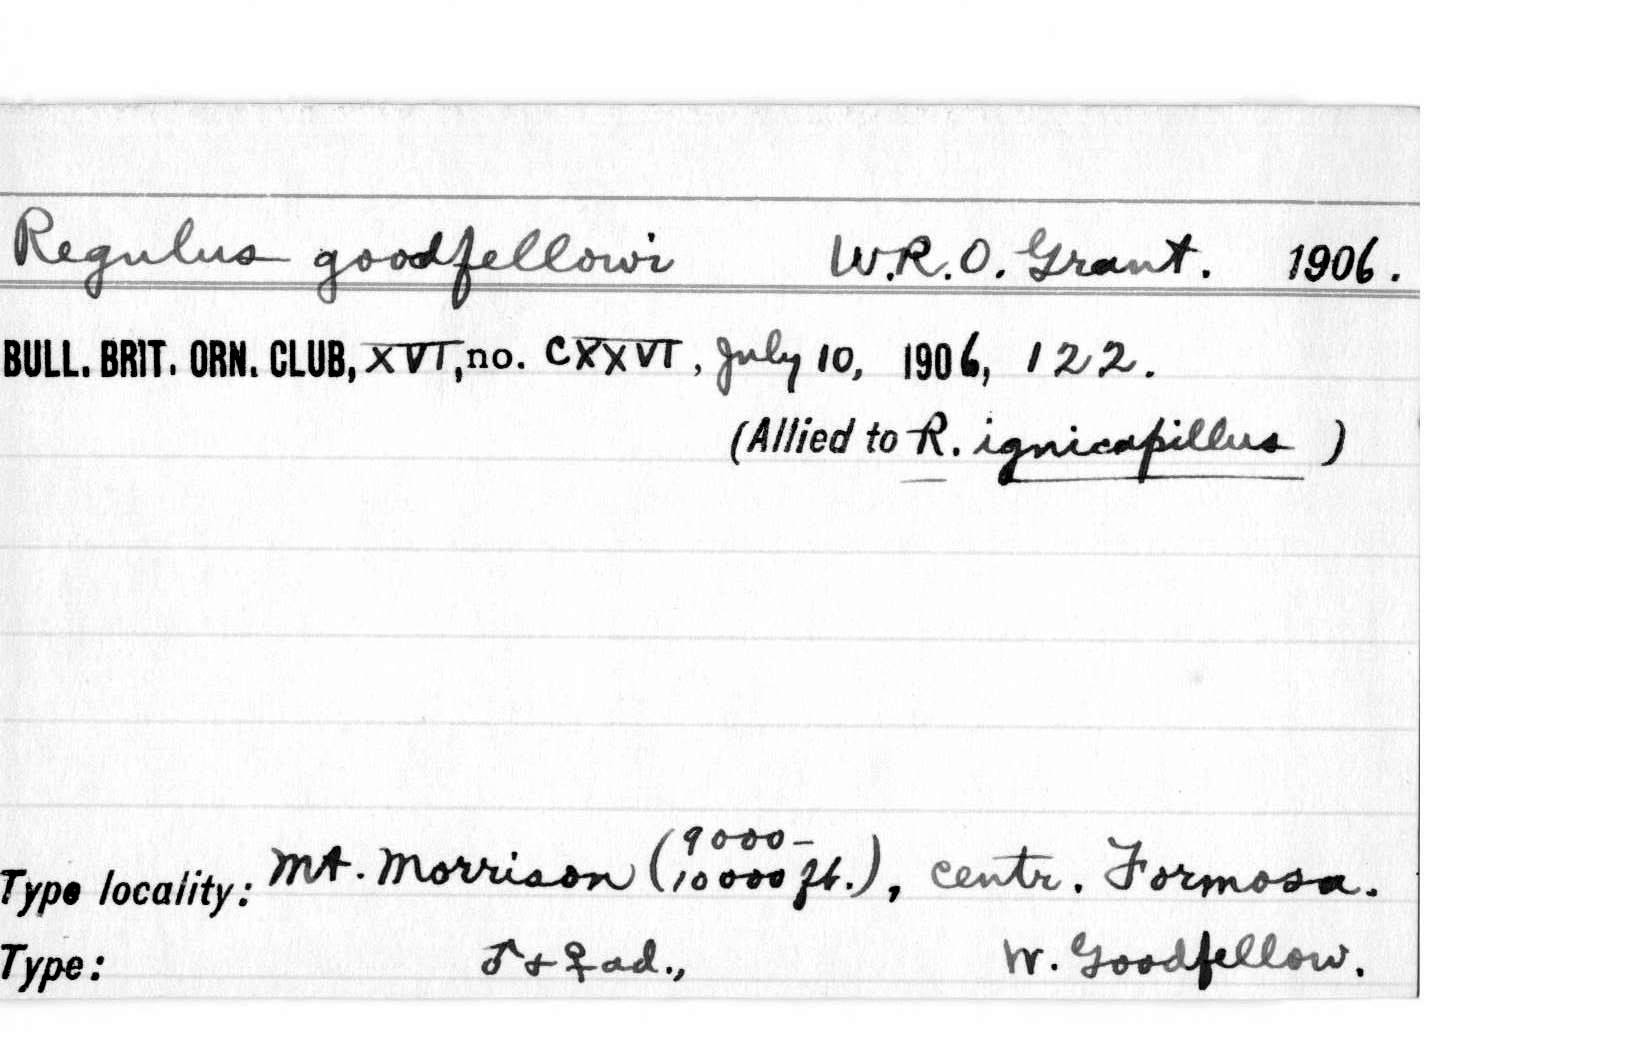 Regulus goodfellowi W.R.O. Grant. 1906.
BULL. BRIT. ORN. CLUB, XVI, no. CXXVI, July 10, 1906, 122.
(Allied to R. ignicapillus )
Type locality: Mt. Morrison (9000-10000 ft.), centr. Formosa.
Type: ♂ + ♀ ad., W. Goodfellow.